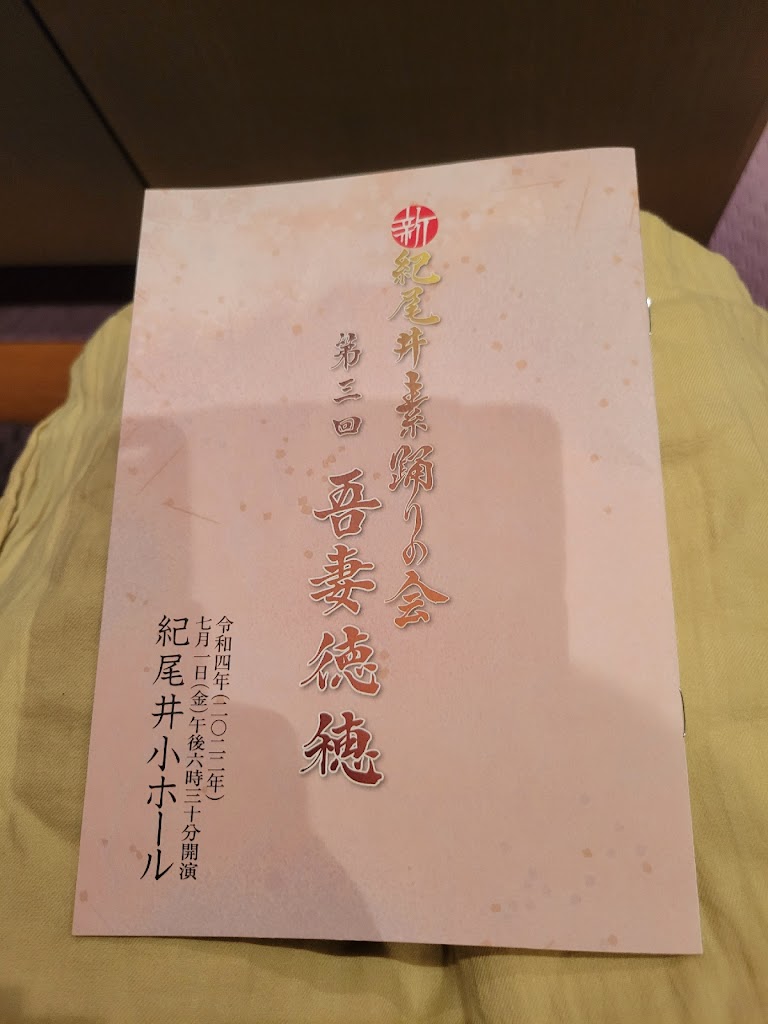 新 紀尾井素踊りの会
第三回 吾妻徳穂
令和四年(二〇二二年)
七月一日(金)午後六時三十分開演
紀尾井小ホール